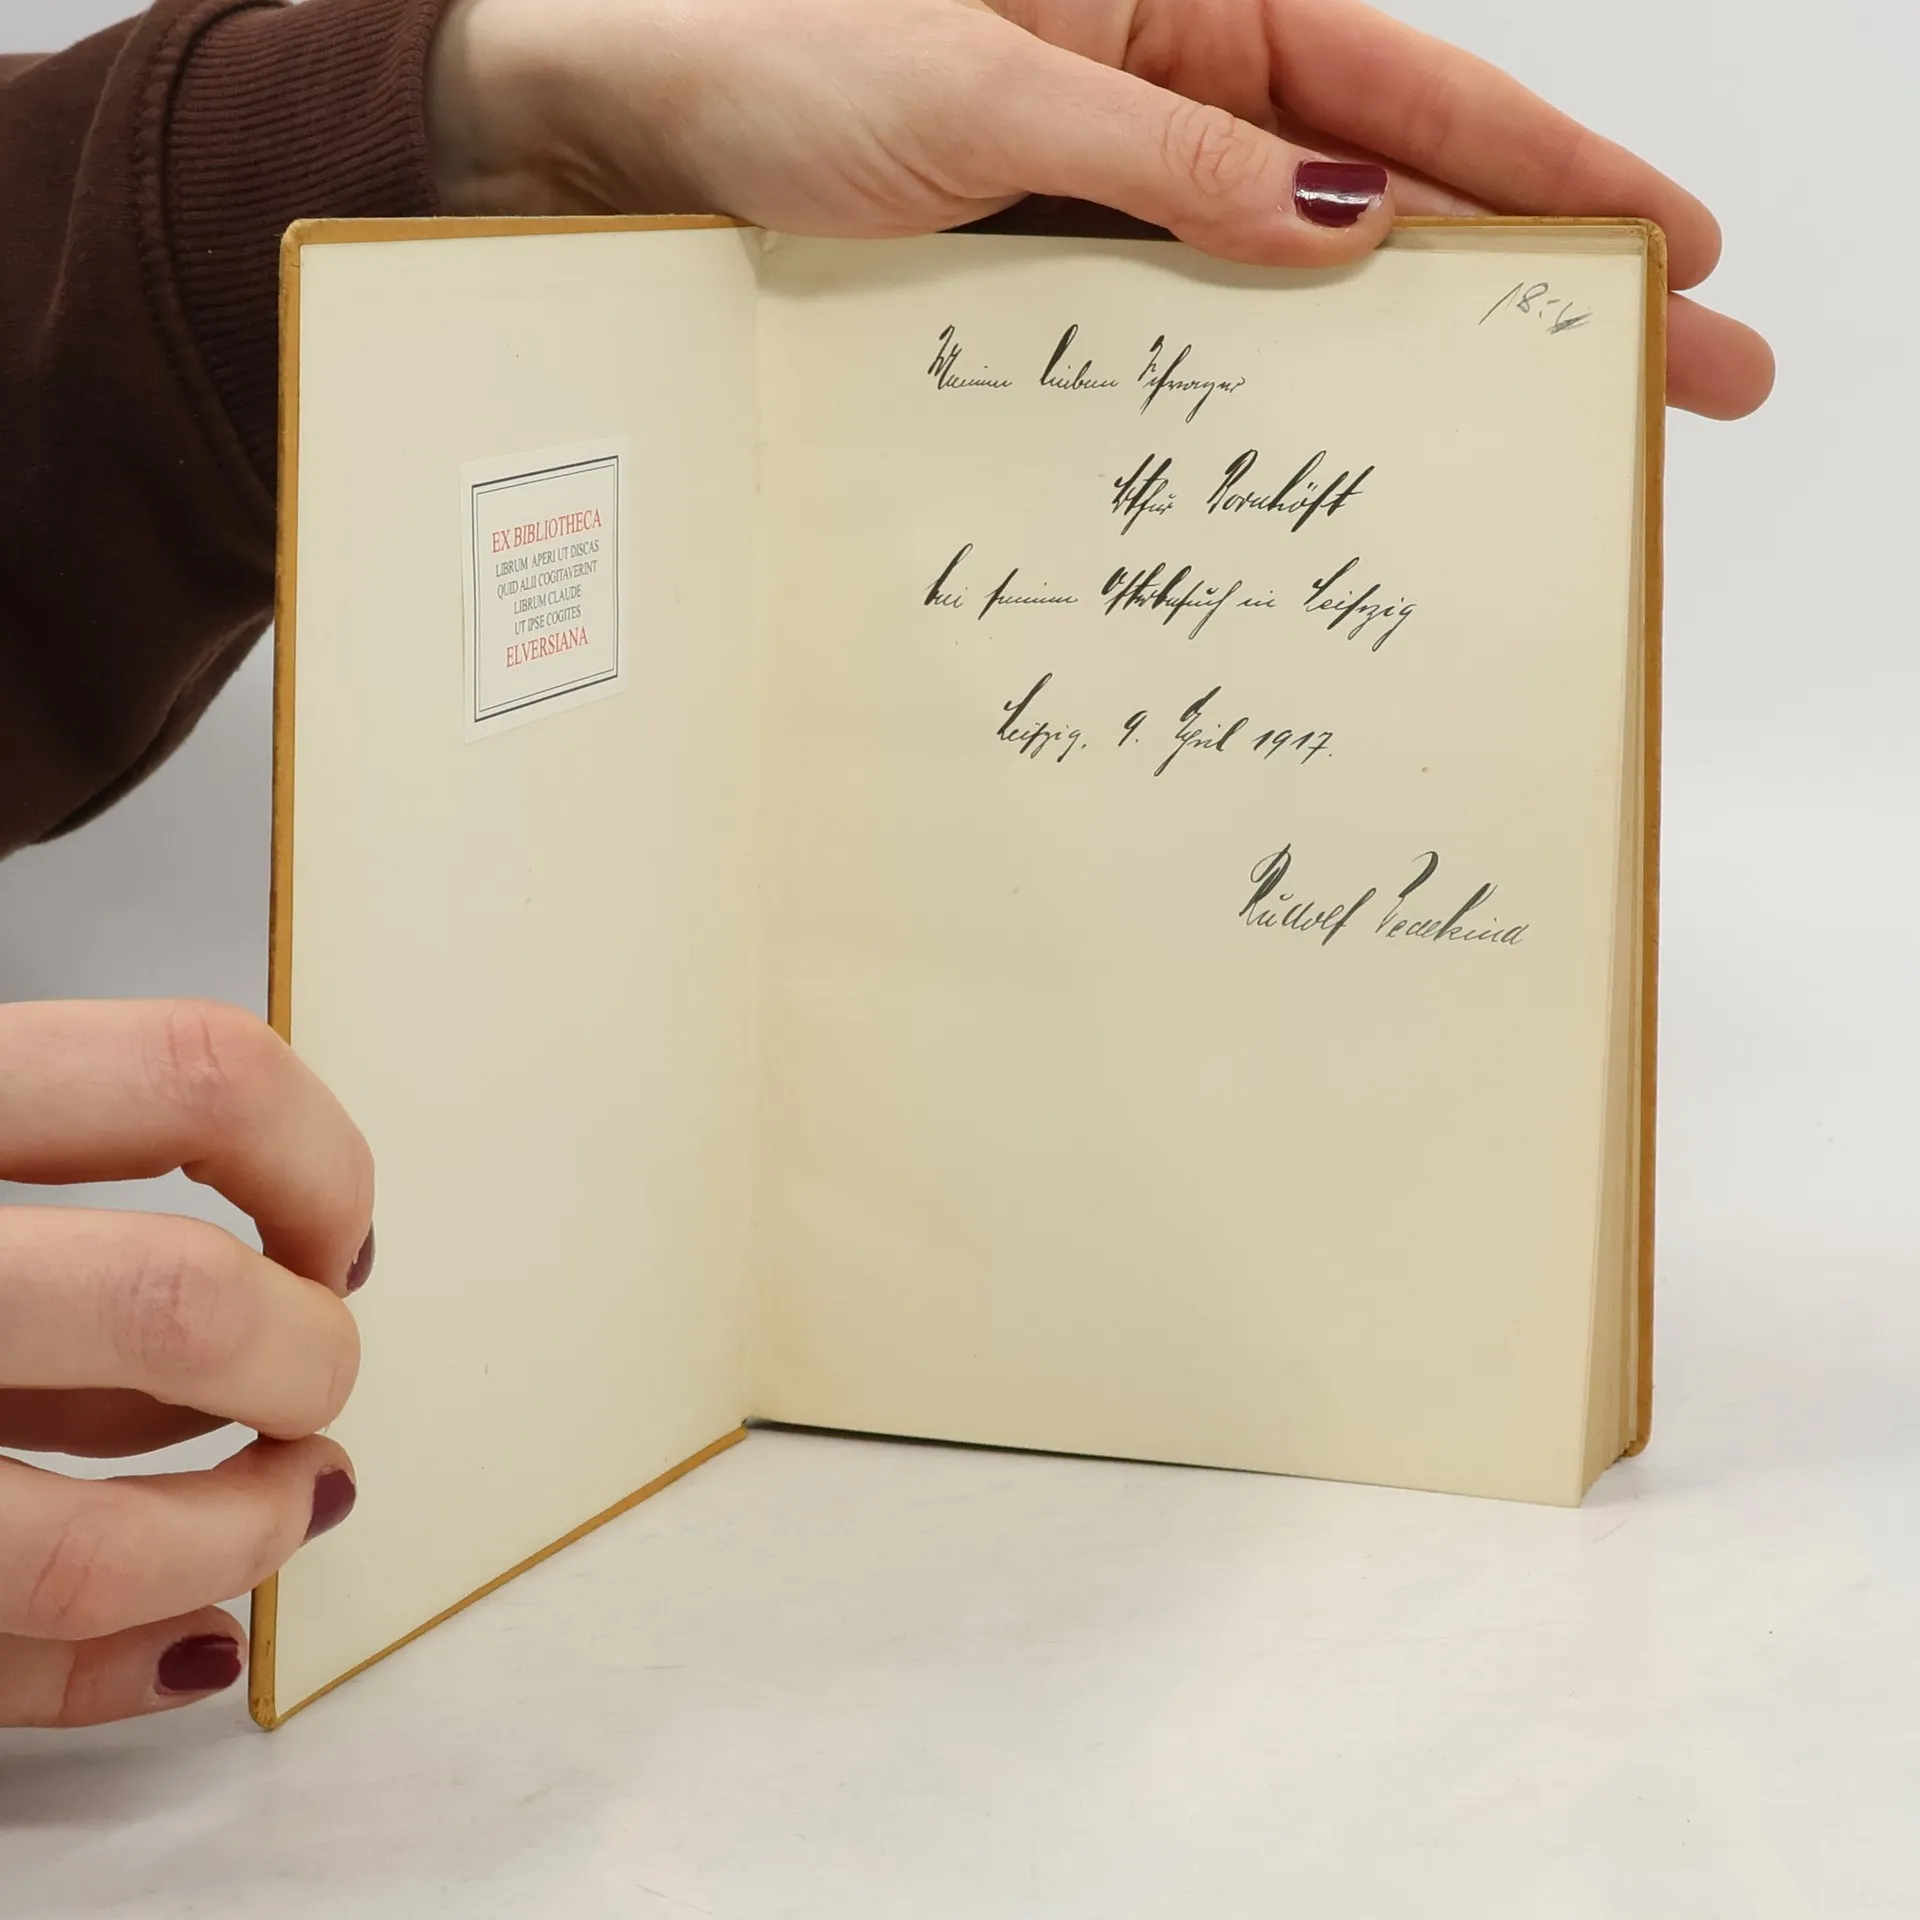 EX BIBLIOTHECA
LIBRUM APERI UT DISCAS
QUID ALII COGITAVERINT
LIBRUM CLAUDE
UT IPSE COGITES
ELVERSIANA
18.-
Meinem lieben Schwager
Bornhöft
bei seinem Osterbesuch in Leipzig
Leipzig, 9. April 1917.
Rudolf Wedekind